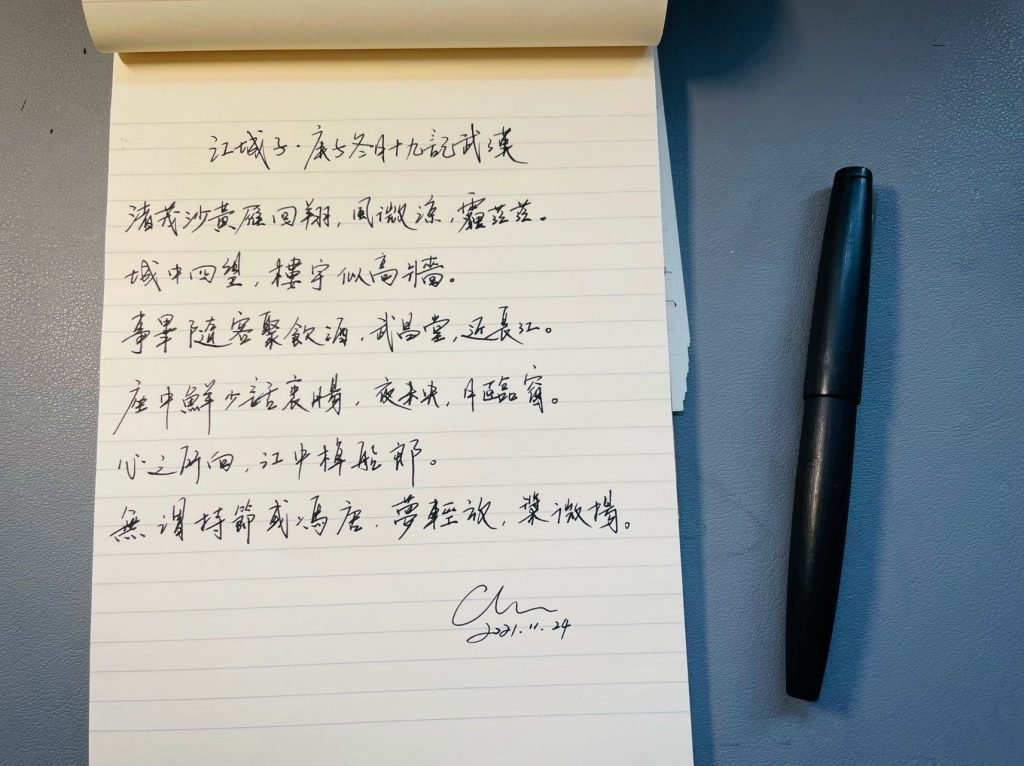 江城子·庚子冬月十九記武漢
渚茂沙黃雁回翔，風微涼，霾茫茫。
城中四望，樓宇似高牆。
事畢隨客聚飲酒，武昌堂，近長江。
座中鮮少話衷腸，夜未央，月臨窗。
心之所向，江中棹船郎。
無謂持節或馮唐，夢輕放，槳微揚。
2021.11.24